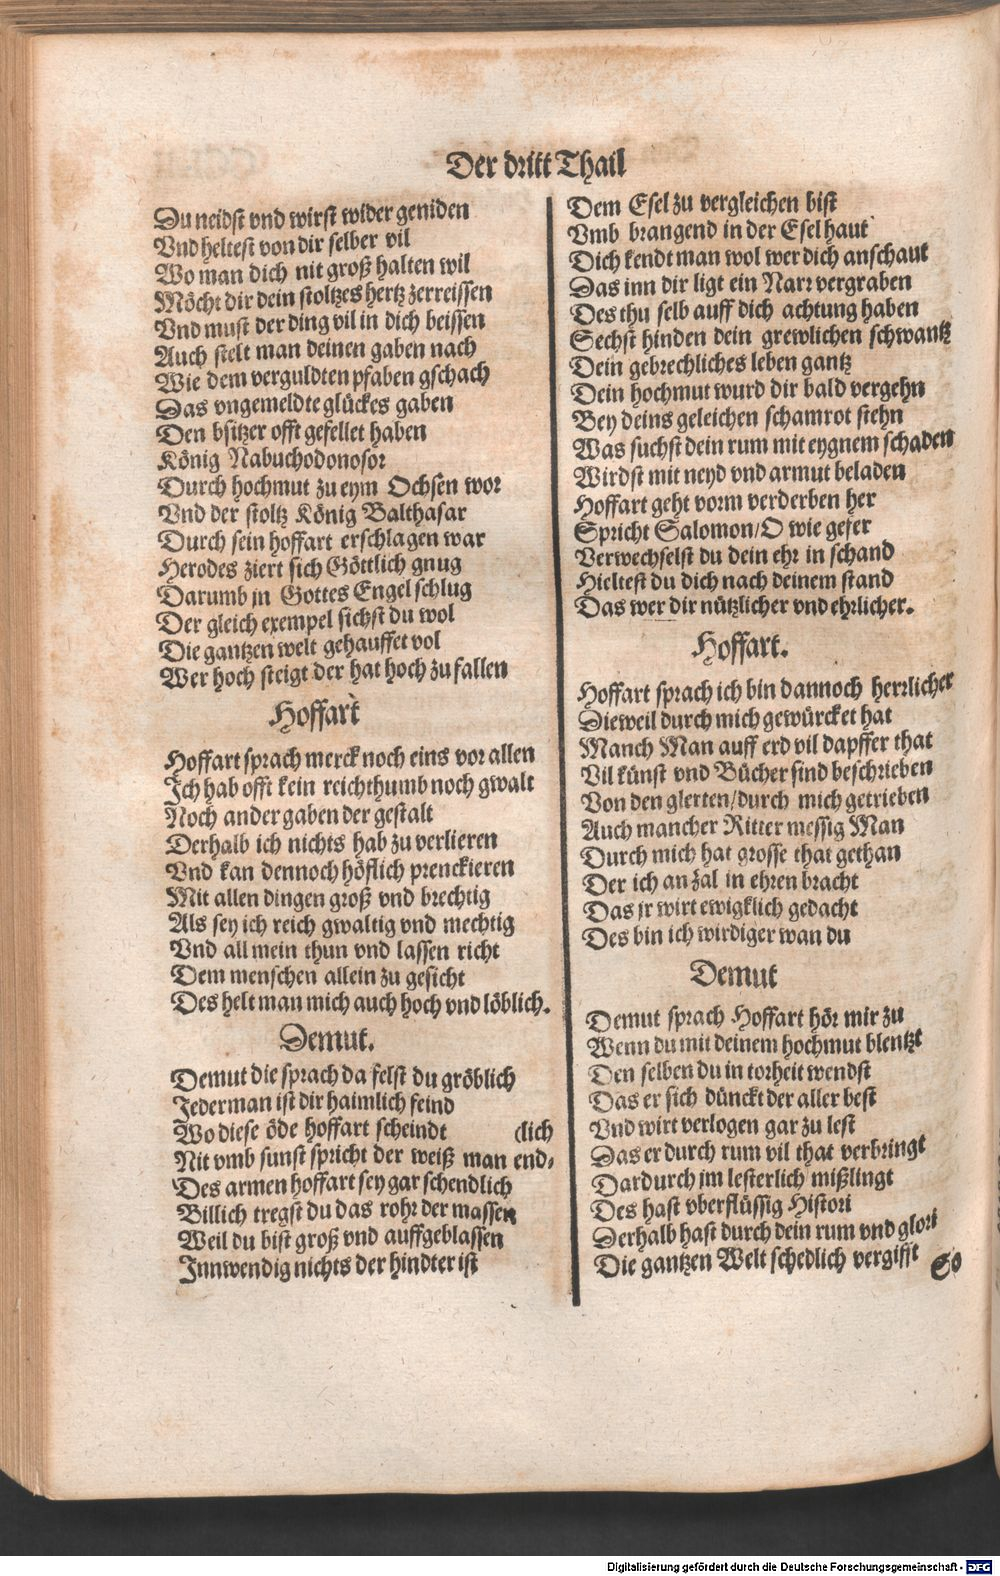 Der dritt Thail
Du neidst vnd wirst wider geniden
Vnd heltest von dir selber vil
Wo man dich nit groß halten wil
Möcht dir dein stoltzes hertz zerreissen
Vnd must der ding vil in dich beissen
Auch stelt man deinen gaben nach
Wie dem verguldten pfaben gschach
Das vngemeldte glückes gaben
Den bsitzer offt gefellet haben
König Nabuchodonosor
Durch hochmut zu eym Ochsen wor
Vnd der stoltz König Balthasar
Durch sein hoffart erschlagen war
Herodes ziert sich Göttlich gnug
Darumb jn Gottes Engel schlug
Der gleich exempel sichst du wol
Die gantzen welt gehauffet vol
Wer hoch steigt der hat hoch zu fallen
Hoffart
Hoffart sprach merck noch eins vor allen
Ich hab offt kein reichthumb noch gwalt
Noch ander gaben der gestalt
Derhalb ich nichts hab zu verlieren
Vnd kan dennoch höflich prenckieren
Mit allen dingen groß vnd brechtig
Als sey ich reich gwaltig vnd mechtig
Vnd all mein thun vnd lassen richt
Dem menschen allein zu gesicht
Des helt man mich auch hoch vnd löblich.
Demut.
Demut die sprach da felst du gröblich
Jederman ist dir haimlich feind
Wo diese öde hoffart scheindt (lich
Nit vmb sunst spricht der weiß man end-
Des armen hoffart sey gar schendlich
Billich tregst du das rohr der massen
Weil du bist groß vnd auffgeblassen
Innwendig nichts der hindter ist
Dem Esel zu vergleichen bist
Vmb brangend in der Esel haut
Dich kendt man wol wer dich anschaut
Das inn dir ligt ein Narr vergraben
Des thu selb auff dich achtung haben
Sechst hinden dein grewlichen schwantz
Dein gebrechliches leben gantz
Dein hochmut wurd dir bald vergehn
Bey deins geleichen schamrot stehn
Was suchst dein rum mit eygnem schaden
Wirdst mit neyd vnd armut beladen
Hoffart geht vorm verderben her
Spricht Salomon/O wie gefer
Verwechselst du dein ehr in schand
Hieltest du dich nach deinem stand
Das wer dir nützlicher vnd ehrlicher.
Hoffart.
Hoffart sprach ich bin dannoch herrlicher
Dieweil durch mich gewürcket hat
Manch Man auff erd vil dapffer that
Vil künst vnd Bücher sind beschrieben
Von den glerten/durch mich getrieben
Auch mancher Ritter messig Man
Durch mich hat grosse that gethan
Der ich an zal in ehren bracht
Das jr wirt ewigklich gedacht
Des bin ich wirdiger wan du
Demut
Demut sprach Hoffart hör mir zu
Wenn du mit deinem hochmut blentzt
Den selben du in torheit wendst
Das er sich dünckt der aller best
Vnd wirt verlogen gar zu lest
Das er durch rum vil that verbringt
Dardurch jm lesterlich mißlingt
Des hast vberflüssig Histori
Derhalb hast durch dein rum vnd glori
Die gantzen Welt schedlich vergifft
So
Digitalisierung gefördert durch die Deutsche Forschungsgemeinschaft - DFG